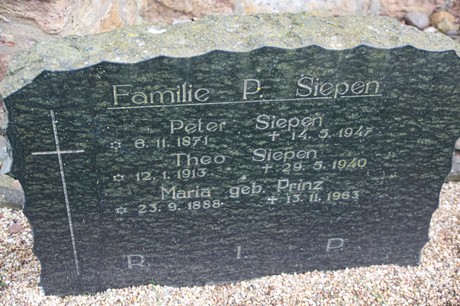 Familie P. Siepen
Peter Siepen
✡ 6.11.1871 ✝ 14.5.1947
Theo Siepen
✡ 12.1.1913 ✝ 29.5.1940
Maria geb. Prinz
✡ 23.9.1888 ✝ 13.11.1963
R. I. P.